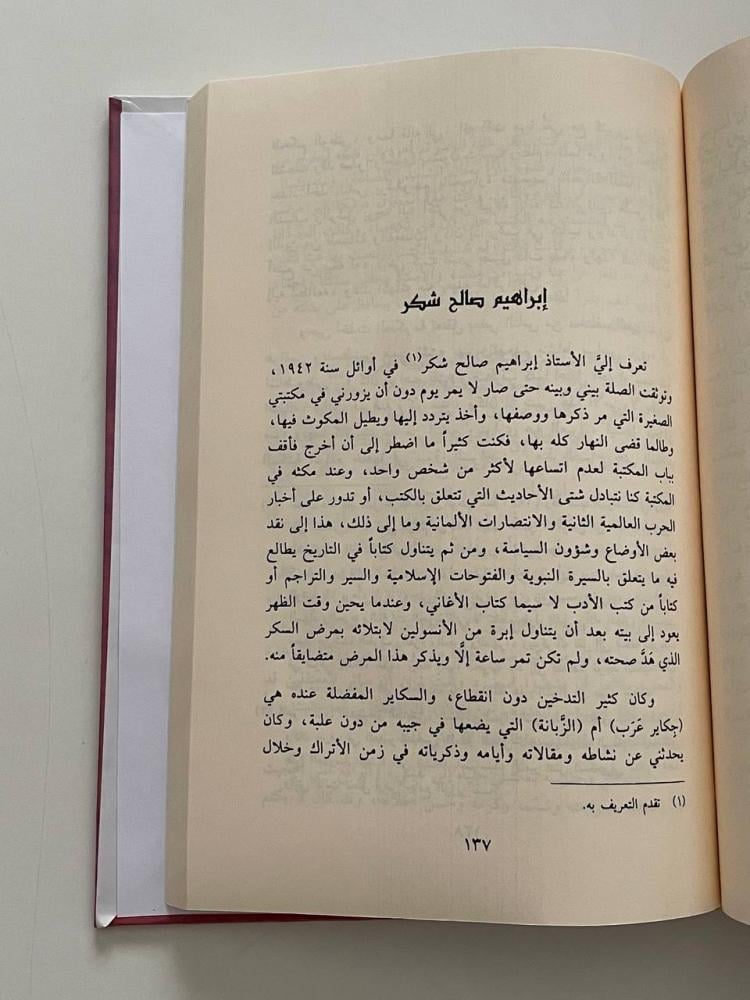 إبراهيم صالح شكر
تعرف إليَّ الأستاذ إبراهيم صالح شكر(١) في أوائل سنة ١٩٤٢،
وتوثقت الصلة بيني وبينه حتى صار لا يمر يوم دون أن يزورني في مكتبتي
الصغيرة التي مر ذكرها ووصفها، وأخذ يتردد إليها ويطيل المكوث فيها،
وطالما قضى النهار كله بها، فكنت كثيراً ما اضطر إلى أن أخرج فأقف
بباب المكتبة لعدم اتساعها لأكثر من شخص واحد، وعند مكثه في
المكتبة كنا نتبادل شتى الأحاديث التي تتعلق بالكتب، أو تدور على أخبار
الحرب العالمية الثانية والانتصارات الألمانية وما إلى ذلك، هذا إلى نقد
بعض الأوضاع وشؤون السياسة، ومن ثم يتناول كتاباً في التاريخ يطالع
فيه ما يتعلق بالسيرة النبوية والفتوحات الإسلامية والسير والتراجم أو
كتاباً من كتب الأدب لا سيما كتاب الأغاني، وعندما يحين وقت الظهر
يعود إلى بيته بعد أن يتناول إبرة من الأنسولين لابتلائه بمرض السكر
الذي هَدَّ صحته، ولم تكن تمر ساعة إلَّا ويذكر هذا المرض متضايقاً منه.
وكان كثير التدخين دون انقطاع، والسكاير المفضلة عنده هي
(جِكاير عَرَب) أم (الزَّبانة) التي يضعها في جيبه من دون علبة، وكان
يحدثني عن نشاطه ومقالاته وأيامه وذكرياته في زمن الأتراك وخلال
(١) تقدم التعريف به.
١٣٧